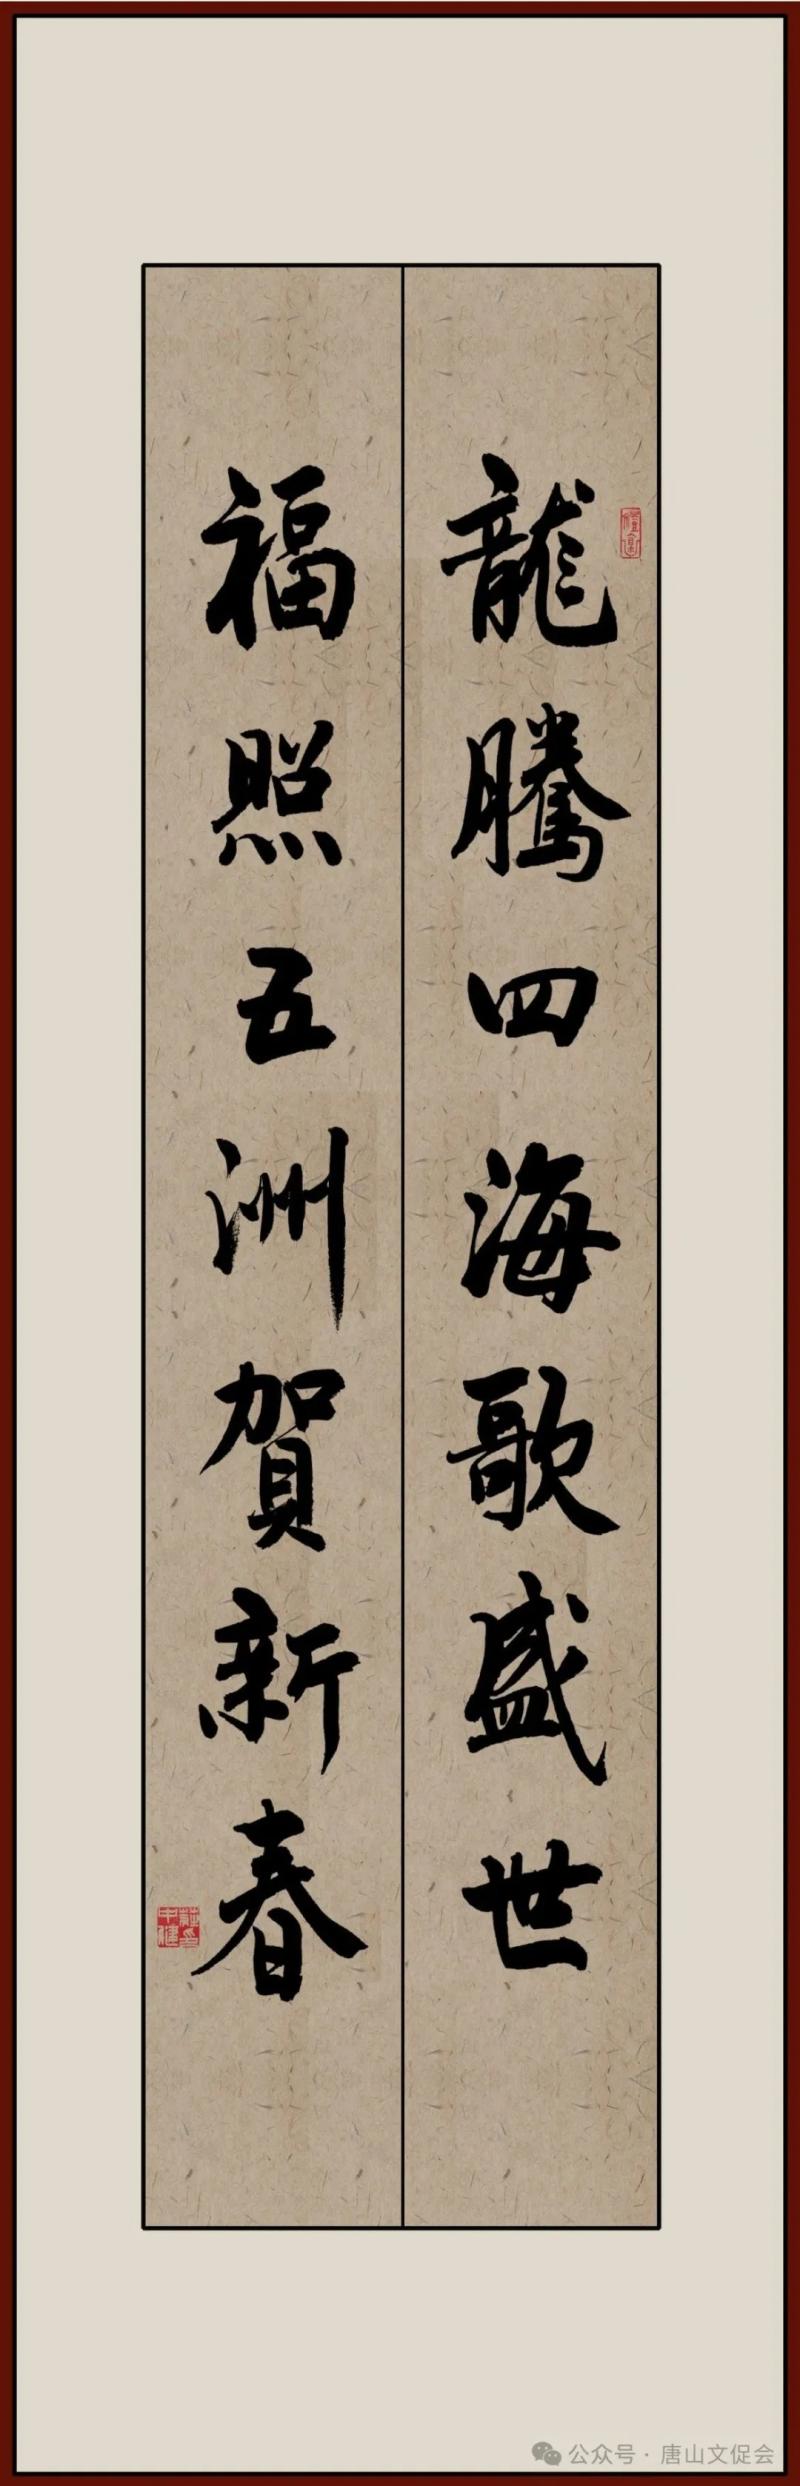 龍騰四海歌盛世
福照五洲賀新春
公众号·唐山文促会